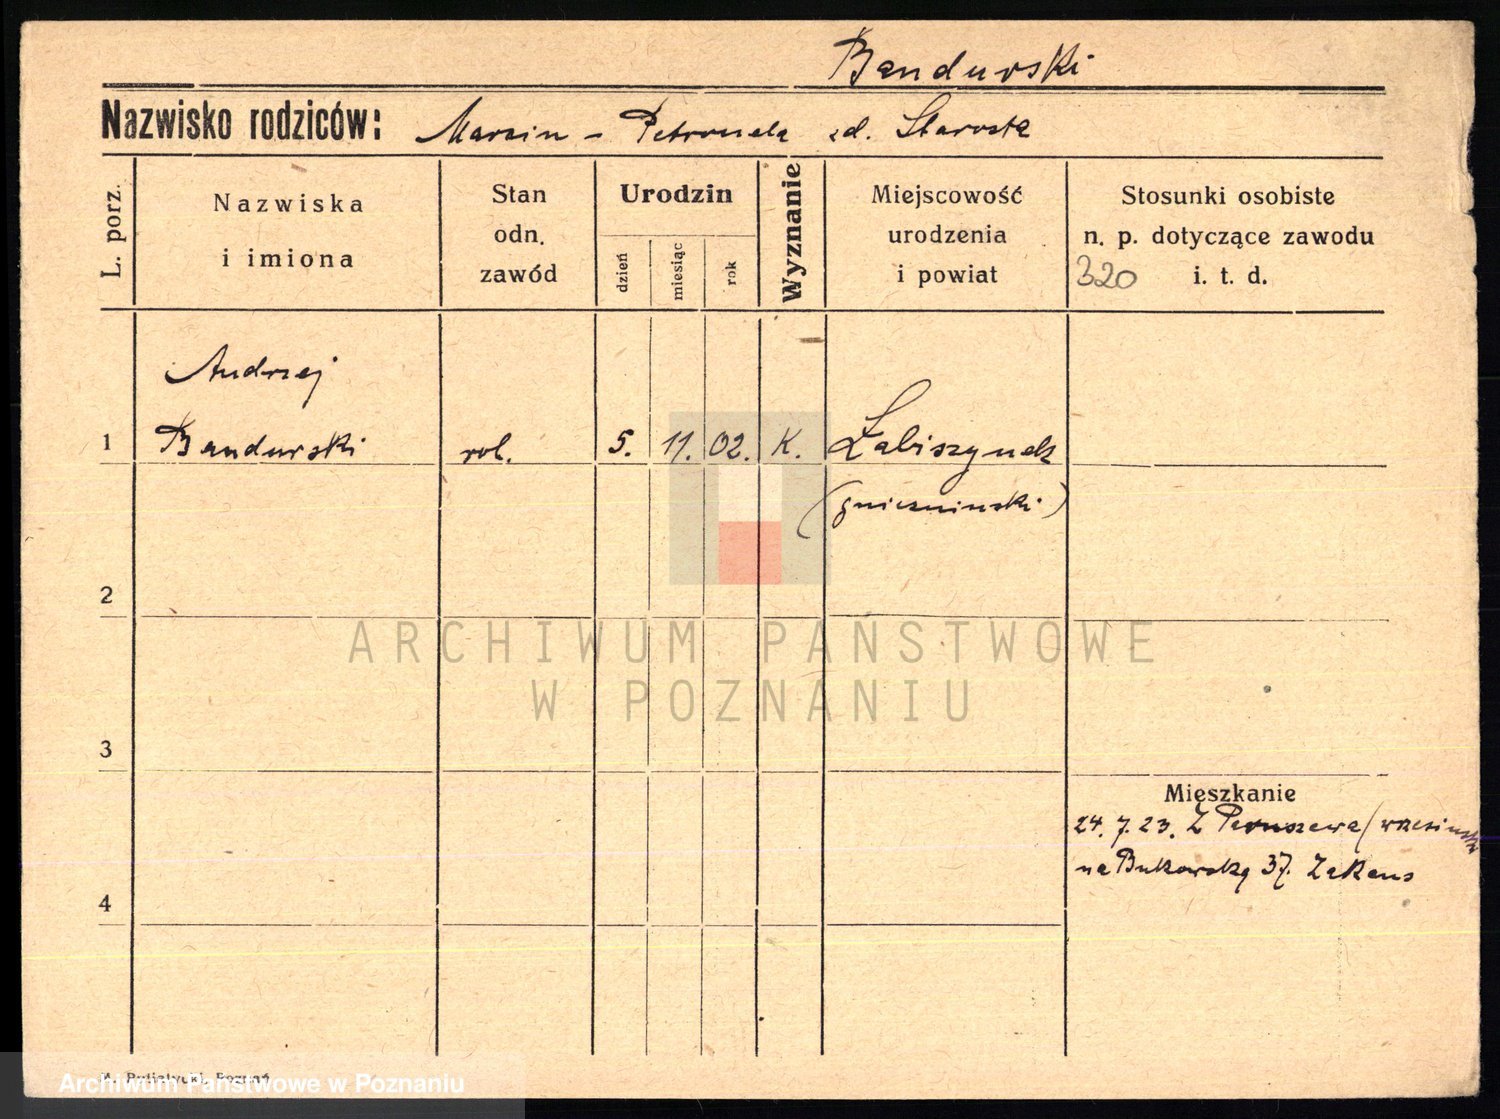 Bandurski
Nazwisko rodziców: Marcin - Petronela zd. Starosta
L. porz.
Nazwiska
i imiona
Stan
odn.
zawód
Urodzin
dzień
miesiąc
rok
Wyznanie
Miejscowość
urodzenia
i powiat
Stosunki osobiste
n. p. dotyczące zawodu
320 i. t. d.
Andrzej
1 Bandurski rol. 5. 11. 02. K. Łabiszynek
(gnieźnieński)
2
ARCHIWUM PAŃSTWOWE
W POZNANIU
3
Mieszkanie
24. 7. 23. Z (wrzesiński
na Bukowską 37.
4
Poznań
Archiwum Państwowe w Poznaniu